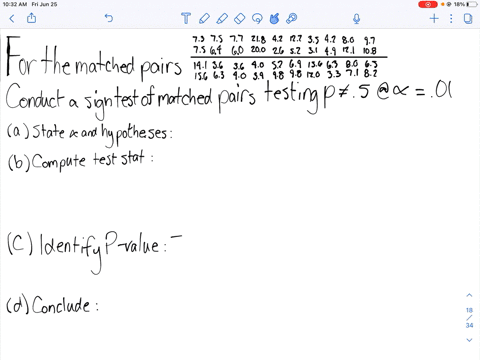 10:32 AM Fri Jun 25
18%
7.3 7.5 7.7 21.8 4.2 12.7 3.5 4.2 8.0 9.7
7.5 6.4 6.0 20.0 2.6 5.2 3.1 4.9 12.1 10.8
14.1 3.6 3.6 4.0 5.2 6.9 13.6 6.3 8.0 6.3
15.6 6.3 4.0 3.9 9.8 9.8 12.0 3.3 7.1 8.2
For the matched pairs
Conduct a sign test of matched pairs testing p ≠ .5 @ α = .01
(a) State α and hypotheses:
(b) Compute test stat:
(C) Identify P-value: -
(d) Conclude:
18
/
34